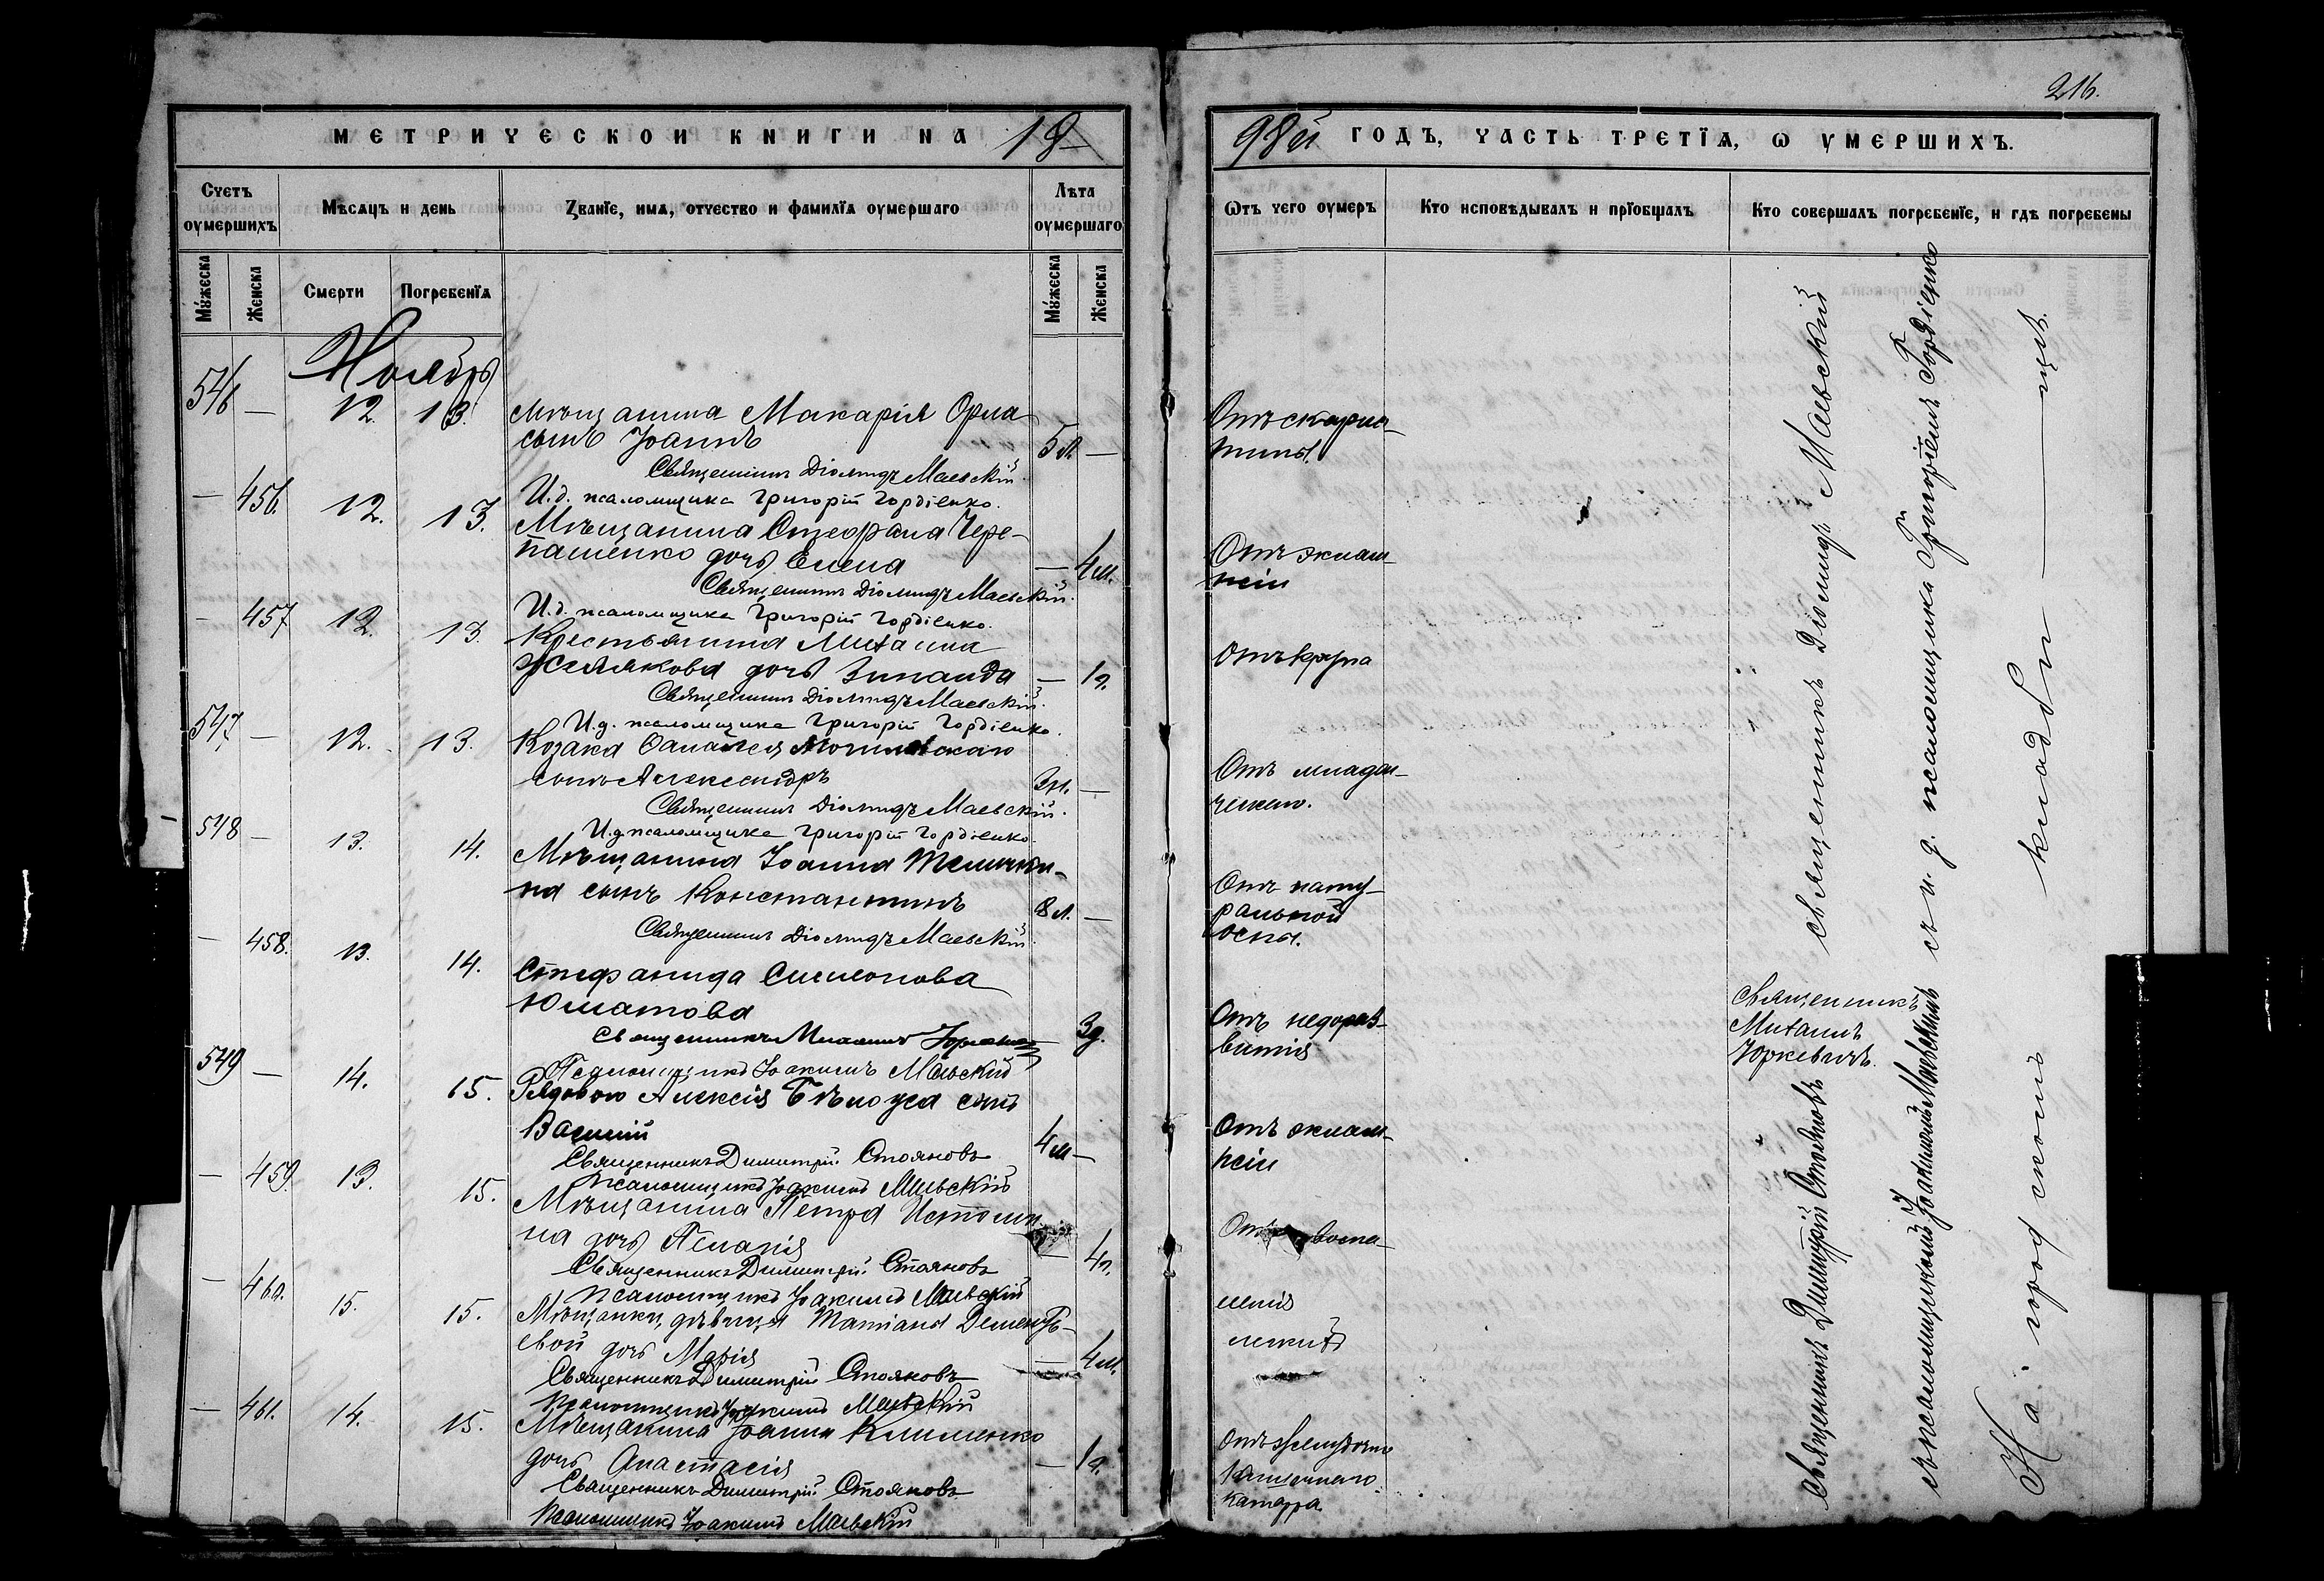 216.
МЕТРИЧЕСКОИ КНИГИ НА 18
98й ГОДЪ, ЧАСТЬ ТРЕТЇѦ, Ѡ УМЕРШИХЪ.
Счетъ оумершихъ
Мѣсѧцъ и день
Званїе, имѧ, отчество и фамилїѧ оумершаго
Лѣта оумершаго
Ѿтъ чего оумеръ
Кто исповѣдывалъ и прїобщалъ
Кто совершалъ погребенїе, и гдѣ погребены
Мꙋжеска
Женска
Смерти
Погребенїѧ
Мꙋжеска
Женска
Ноябрь
546 — 12. 13. Мѣщанина Макарія Орла
сынъ Іоаннъ 5 л. —
Отъ скарла-
тины.
Священникъ Діомидъ Маевскій.
И.д. псаломщика Григорій Гордіенко.
— 456. 12. 13. Мѣщанина Стефана Чере-
пашенко дочь Елена — 4 м.
Отъ эклам-
псіи
Священникъ Діомидъ Маевскій.
И.д. псаломщика Григорій Гордіенко.
— 457 12. 13. Крестьянина Михаила
дочь Зинаида — 1 г.
Отъ крупа
Священникъ Діомидъ Маевскій.
И.д. псаломщика Григорій Гордіенко.
547 — 12. 13. Козака
сынъ Александръ 3 м. —
Отъ младен-
ческаго.
Священникъ Діомидъ Маевскій.
И.д. псаломщика Григорій Гордіенко
548 — 13. 14. Мѣщанина Іоанна
на сынъ Константинъ 8 л. —
Отъ нату-
ральной
оспы.
Священникъ Діомидъ Маевскій.
— 458. 13. 14. Стефанида Симеонова
Юматова — 3 д.
Отъ недораз-
витія
Священникъ
Михаилъ
Юркевичъ.
Священникъ Михаилъ Юркевичъ
Псаломщикъ Іоакимъ Маевскій
549 — 14. 15. Рядового Алексія Бѣлоуса сынъ
Василій 4 м —
Отъ эклам-
псіи
Священникъ Димитрій Стояновъ
Псаломщикъ Іоакимъ Маевскій
— 459. 13. 15. Мѣщанина Петра Истоми-
на дочь — 4 г.
Отъ воспа-
ленія
легкихъ
Священникъ Димитрій Стояновъ
Псаломщикъ Іоакимъ Маевскій
— 460. 15. 15. Мѣщанки, дѣвицы Татіаны Дементь-
евой дочь Марія — 4 м.
Священникъ Димитрій Стояновъ
Псаломщикъ Іоакимъ Маевскій
— 461. 14. 15. Мѣщанина Іоанна Клименко
дочь Анастасія — 1 г.
Отъ желудочно
кишечнаго
катарра.
Священникъ Димитрій Стояновъ
Псаломщикъ Іоакимъ Маевскій
священникъ Діомидъ Маевскій
съ и. д. псаломщика Григоріемъ Гордіенко
Священникъ Димитрій Стояновъ
съ псаломщикомъ Іоакимомъ Маевскимъ
На городскомъ кладби — щѣ.